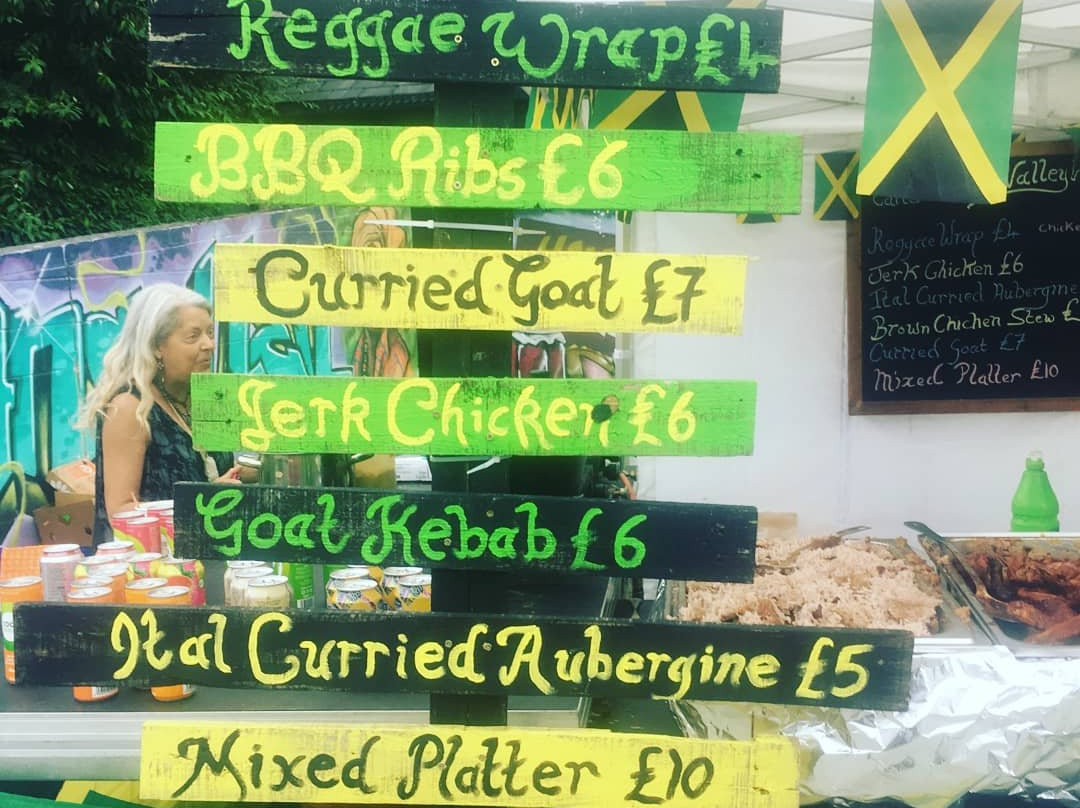 Reggae Wrap £4
BBQ Ribs £6
Curried Goat £7
Jerk Chicken £6
Goat Kebab £6
Ital Curried Aubergine £5
Mixed Platter £10
Valley
Reggae Wrap £4
Jerk Chicken £6
Ital Curried Aubergine
Brown Chicken Stew £
Curried Goat £7
Mixed Platter £10